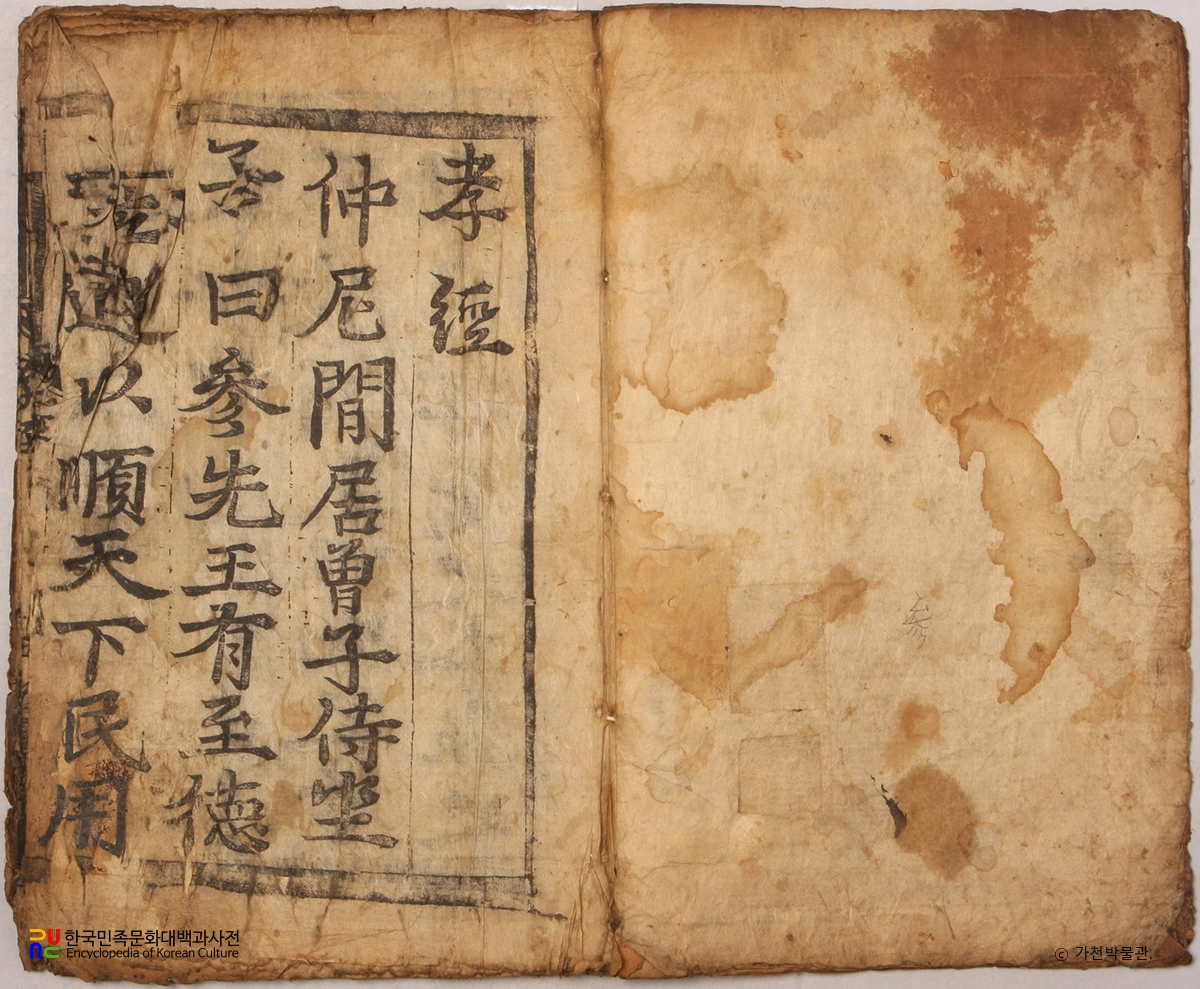 孝經
仲尼閒居曾子侍坐
曰參先王有至德
道以順天下民用
한국민족문화대백과사전
Encyclopedia of Korean Culture
© 가천박물관.